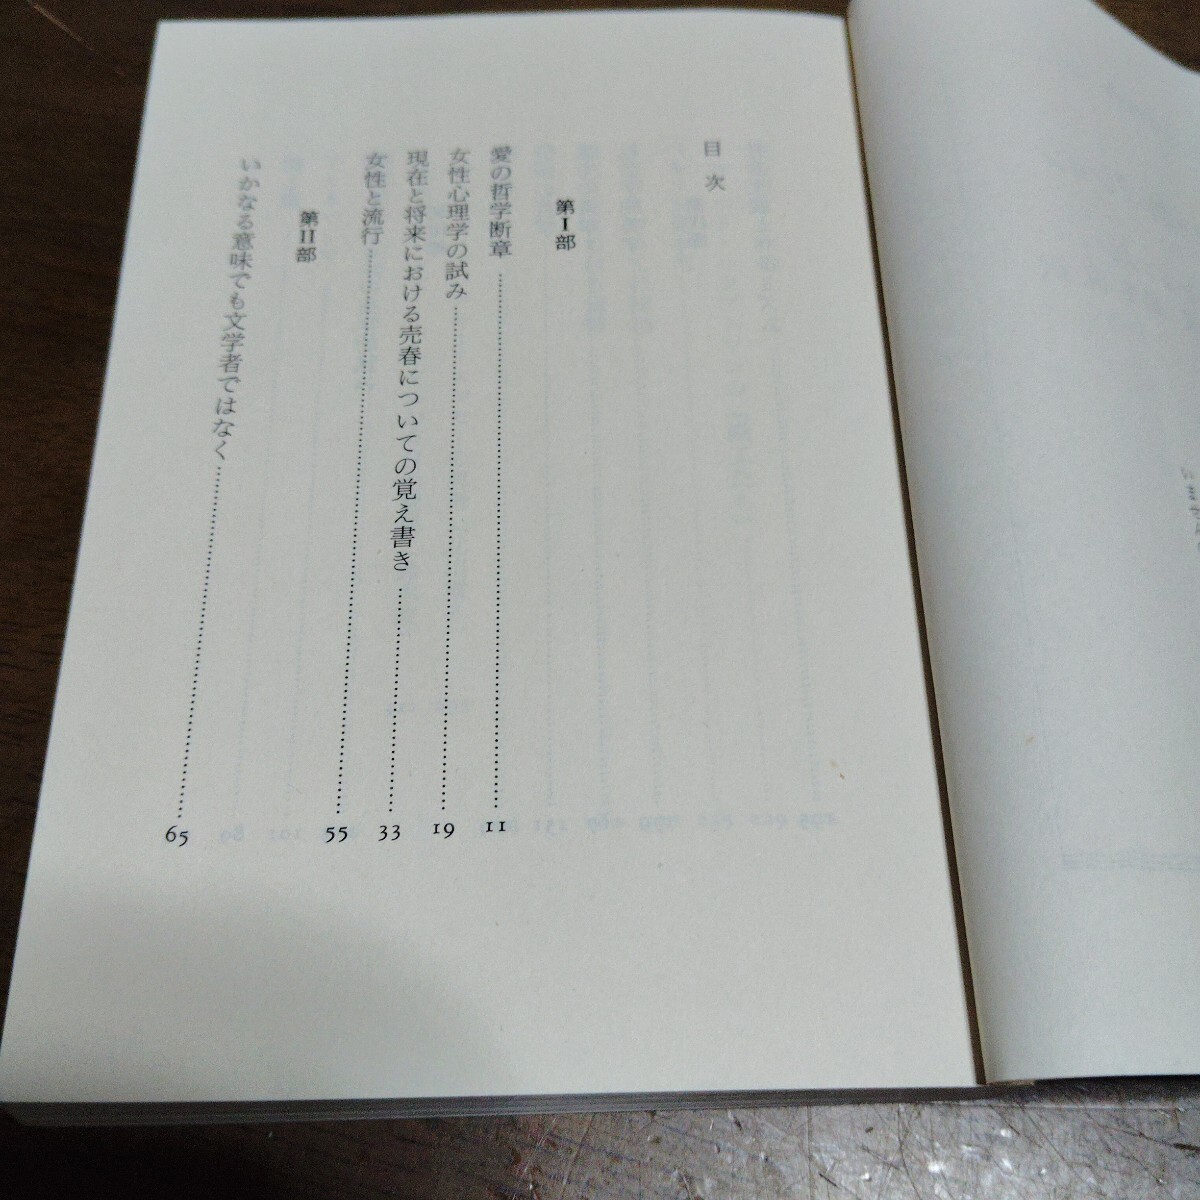 目次
第Ⅰ部
愛の哲学断章……11
女性心理学の試み……19
現在と将来における売春についての覚え書き……33
女性と流行……55
第Ⅱ部
いかなる意味でも文学者ではなく……65